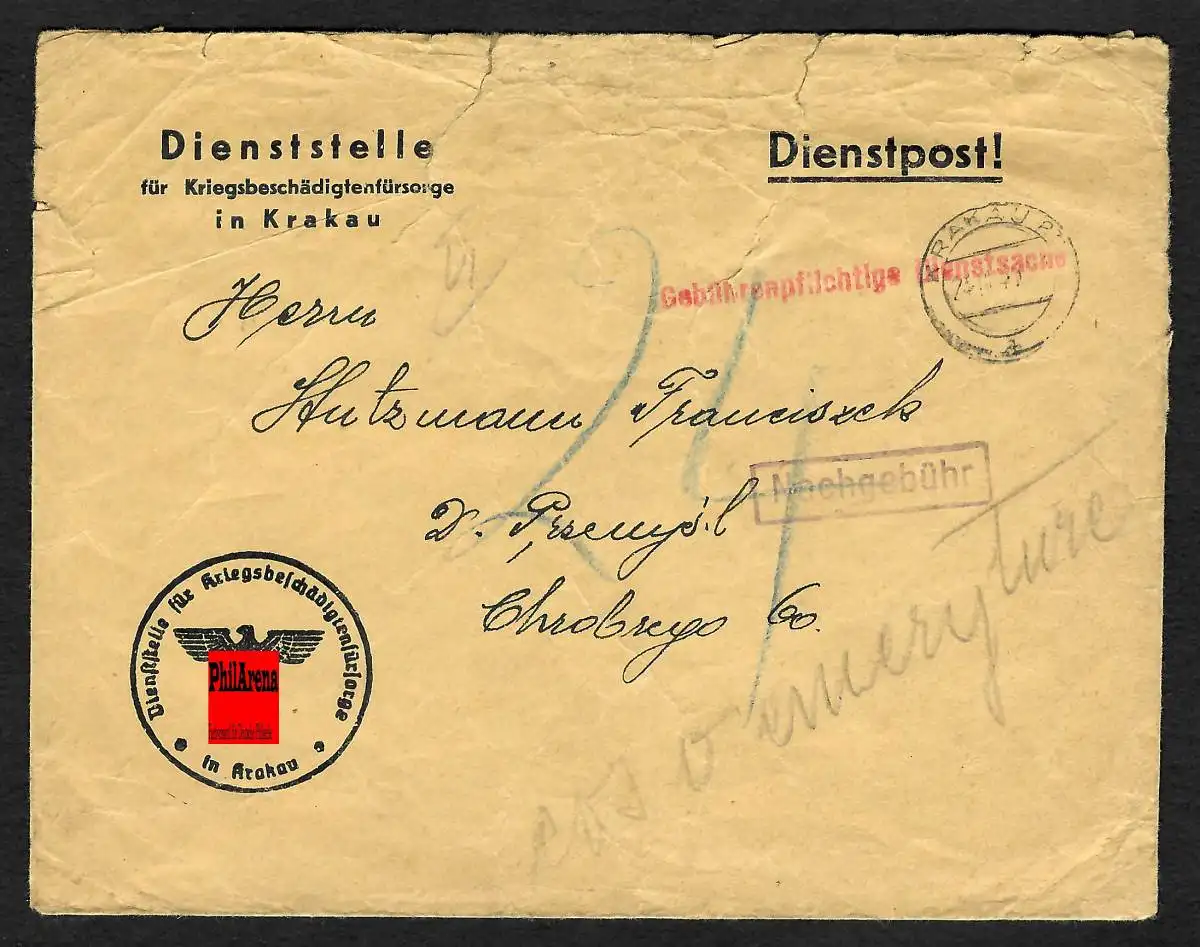 Dienststelle
für Kriegsbeschädigtenfürsorge
in Krakau
Dienstpost!
KRAKAU
Gebührenpflichtige Dienstsache
Herrn
Hutzmann Franciszek
Nachgebühr
24
Przemyśl
Chrobrego 60.
Dienststelle für Kriegsbeschädigtenfürsorge
in Krakau
PhilArena
coś o emeryturę